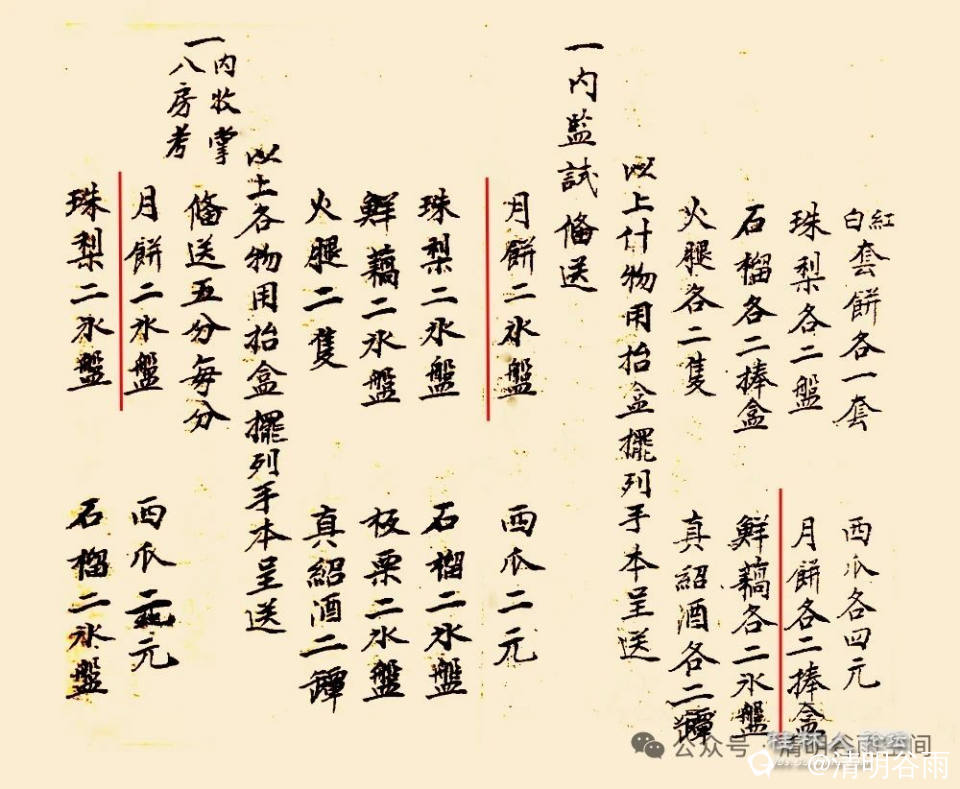 紅白套餅各一套 西瓜各四元
珠梨各二盤 月餅各二捧盒
石榴各二捧盒 鮮藕各二氷盤
火腿各二隻 真紹酒各二罈
以上什物用抬盒擺列手本呈送
一內監試 俻送
月餅二氷盤 西瓜二元
珠梨二氷盤 石榴二氷盤
鮮藕二氷盤 板栗二氷盤
火腿二隻 真紹酒二罈
以上各物用抬盒擺列手本呈送
一內收掌
八房考
俻送五分每分
月餅二氷盤 西瓜二元
珠梨二氷盤 石榴二氷盤
公众号·清明谷雨空间
@清明谷雨